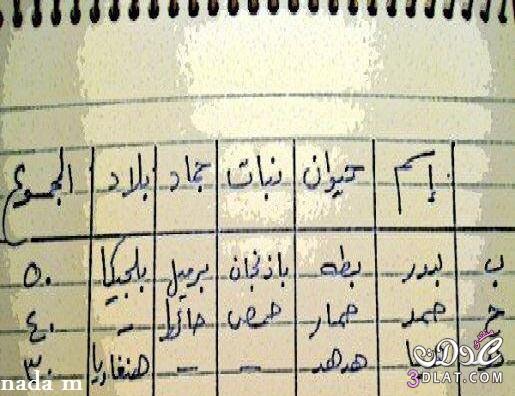 إسم حيوان نبات جماد بلاد المجموع
ب بدر بطه باذنجان برميل بلجيكا ٥٠
ح حمد حمار حمص حائط - ٤٠
هدهد - - هنغاريا ٣٠
عدلات
3DLAT.COM
nada m